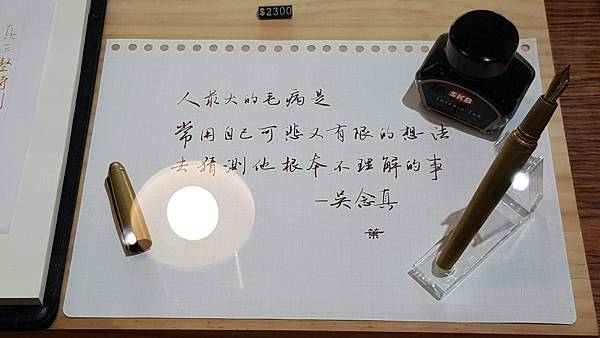 $2300
人最大的毛病是
常用自己可悲又有限的想法
去猜測他根本不理解的事
—吳念真
葉
SKB
Intense Ink